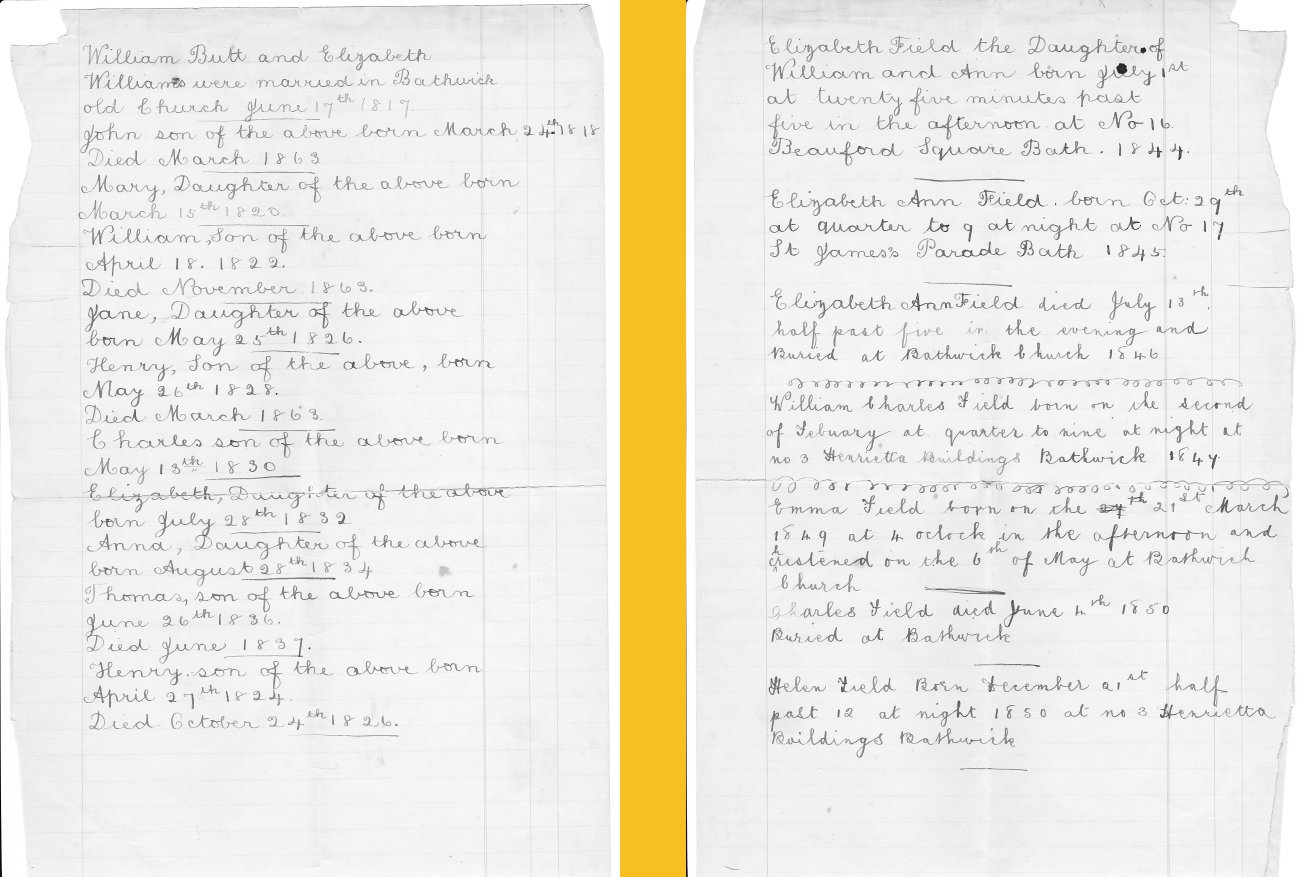 William Butt and Elizabeth
Williams were married in Bathwick
old Church June 17th 1817.
John son of the above born March 24th 1818
Died March 1863
Mary, Daughter of the above born
March 15th 1820.
William, Son of the above born
April 18. 1822.
Died November 1863.
Jane, Daughter of the above
born May 25th 1826.
Henry, Son of the above, born
May 26th 1828.
Died March 1863.
Charles son of the above born
May 13th 1830
Elizabeth, Daughter of the above
born July 28th 1832
Anna, Daughter of the above
born August 28th 1834
Thomas, son of the above born
June 26th 1836.
Died June 1837.
Henry. son of the above born
April 27th 1824.
Died October 24th 1826.
Elizabeth Field the Daughter of
William and Ann born July 1st
at twenty five minutes past
five in the afternoon at No 16.
Beauford Square Bath. 1844.
Elizabeth Ann Field. born Oct: 29th
at quarter to 9 at night at No 17
St James's Parade Bath 1845.
Elizabeth Ann Field died July 13th.
half past five in the evening and
Buried at Bathwick Church 1846
William Charles Field born on the second
of Febuary at quarter to nine at night at
no 3 Henrietta Buildings Bathwick 1847
Emma Field born on the 24th 21st March
1849 at 4 oclock in the afternoon and
christened on the 6th of May at Bathwich
Church
Charles Field died June 4th 1850
Buried at Bathwick
Helen Field Born December 21st half
past 12 at night 1850 at no 3 Henrietta
Buildings Bathwick